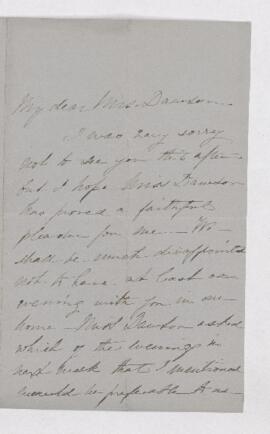 My dear Mrs. Dawson
I was very sorry
not to see you this after-
but I hope Miss Dawson
has proved a faithful
pleader for me. — We
shall be much disappointed
not to have at least one
evening with you in our
home — Miss Dawson asked
which of the evenings in
next week that I mentioned
would be preferable to us —